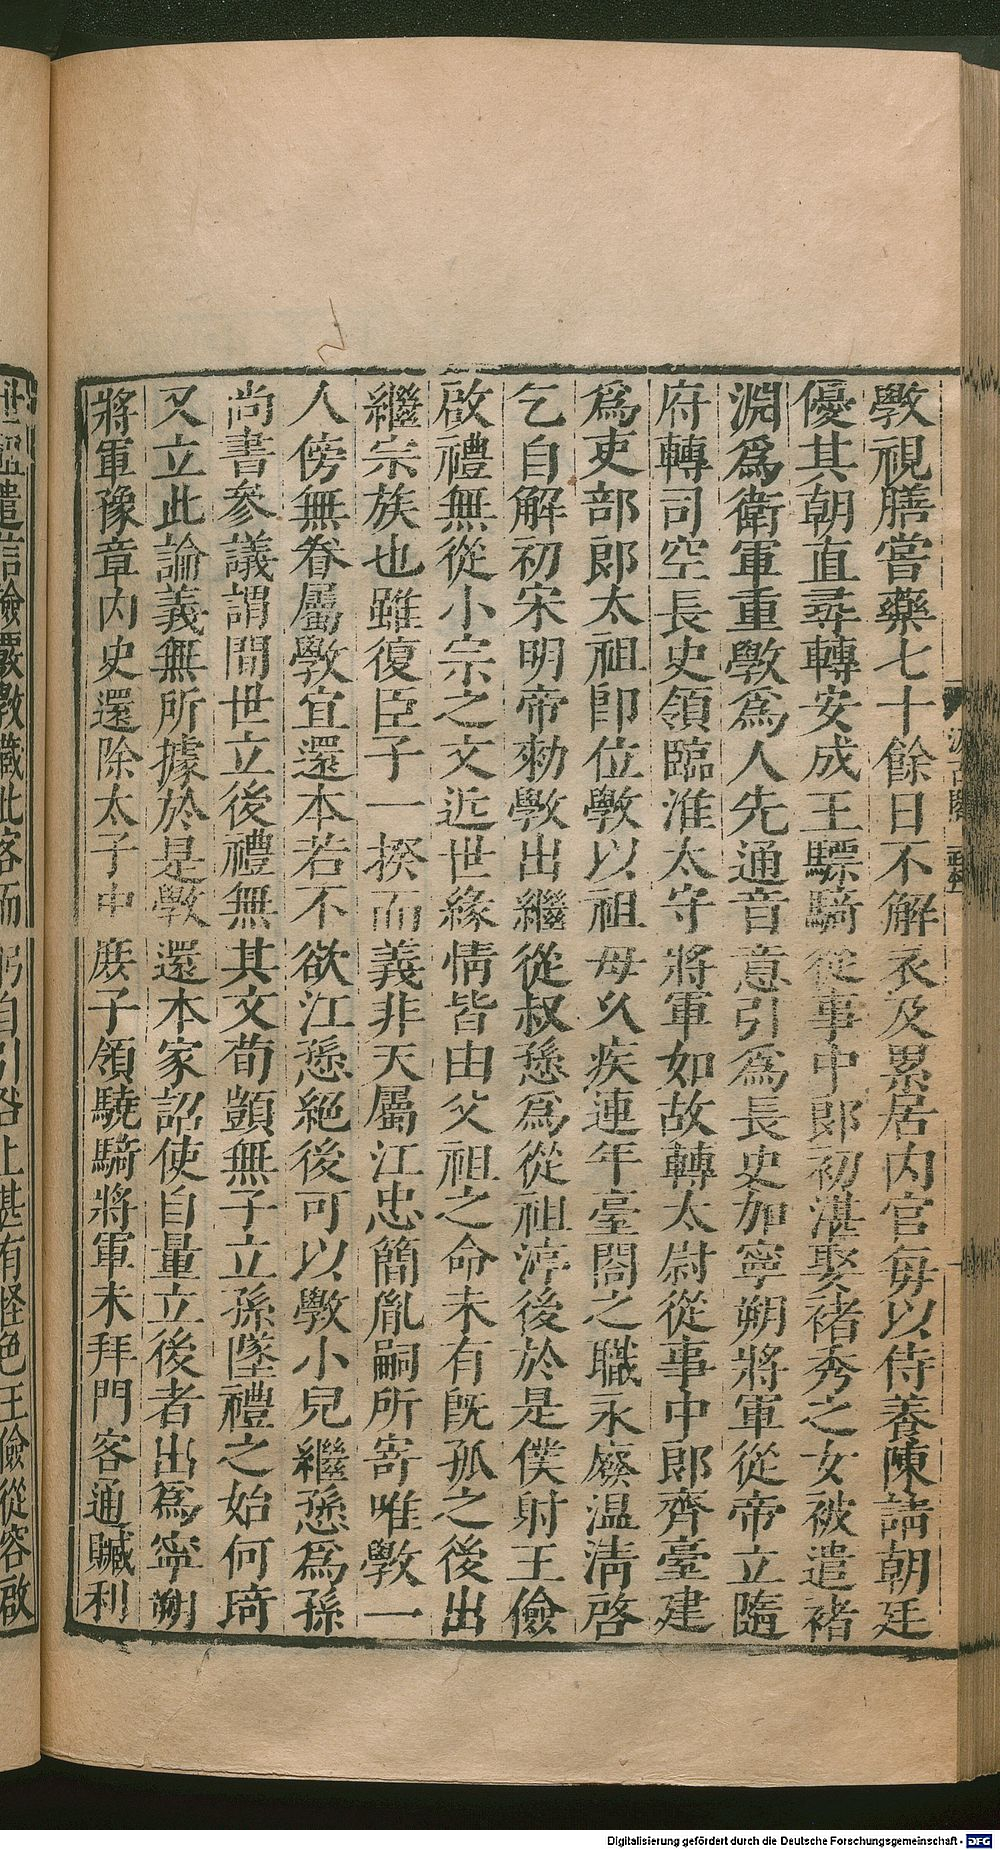 斅視膳嘗藥七十餘日不解衣及累居内官每以侍養陳請朝廷
優其朝直尋轉安成王驃騎從事中郎初湛娶褚秀之女被遣褚
淵爲衛軍重斅爲人先通音意引爲長史加寧朔將軍從帝立隨
府轉司空長史領臨淮太守將軍如故轉太尉從事中郎齊臺建
爲吏部郎太祖即位斅以祖母久疾連年臺閤之職永廢温凊啓
乞自解初宋明帝勑斅出繼從叔愻爲從祖淳後於是僕射王儉
啟禮無從小宗之文近世緣情皆由父祖之命未有既孤之後出
繼宗族也雖復臣子一揆而義非天屬江忠簡胤嗣所寄唯斅一
人傍無眷屬斅宜還本若不欲江愻絕後可以斅小兒繼愻爲孫
尚書參議謂間世立後禮無其文荀顗無子立孫墜禮之始何琦
又立此論義無所據於是斅還本家詔使自量立後者出爲寧朔
將軍豫章内史還除太子中庶子領驍騎將軍未拜門客通贓利
世祖遣信檢覈斅藏此客而躬自引咎上甚有怪色王儉從容啟
Digitalisierung gefördert durch die Deutsche Forschungsgemeinschaft - DFG